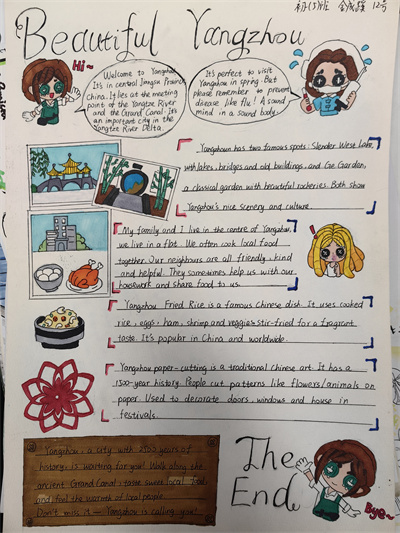 初(5)班
12号
Beautiful Yangzhou
Hi~
Welcome to Yangzhou,
It's in central Jiangsu Province,
China. It lies at the meeting
point of the Yangtze River
and the Grand Canal. It's
an important city in the
Yangtze River Delta.
It's perfect to visit
Yangzhou in spring. But
please remember to prevent
disease like flu! A sound
mind in a sound body.
Yangzhoun has two famous spots: Slender West Lake,
with lakes, bridges and old buildings, and Ge Garden,
a classical garden with beautiful rockeries. Both show
Yangzhou's nice scenery and culture.
My family and I live in the centre of Yangzhou,
we live in a flat. We often cook local food
together. Our neighbours are all friendly, kind
and helpful. They sometimes help us with our
housework and share food to us.
Yangzhou Fried Rice is a famous Chinese dish. It uses cooked
rice, eggs, ham, shrimp and veggies stir-fried for a fragrant
taste. It's popular in China and worldwide.
Yangzhou paper-cutting is a traditional Chinese art. It has a
1500-year history. People cut patterns like flowers/animals on
paper. Used to decorate doors, windows and house in
festivals.
Yangzhou, a city with 2500 years of
history, is waiting for you! Walk along the
ancient Grand Canal, taste sweet local food
and feel the warmth of local people.
Don't miss it — Yangzhou is calling you!
The
End
Bye~